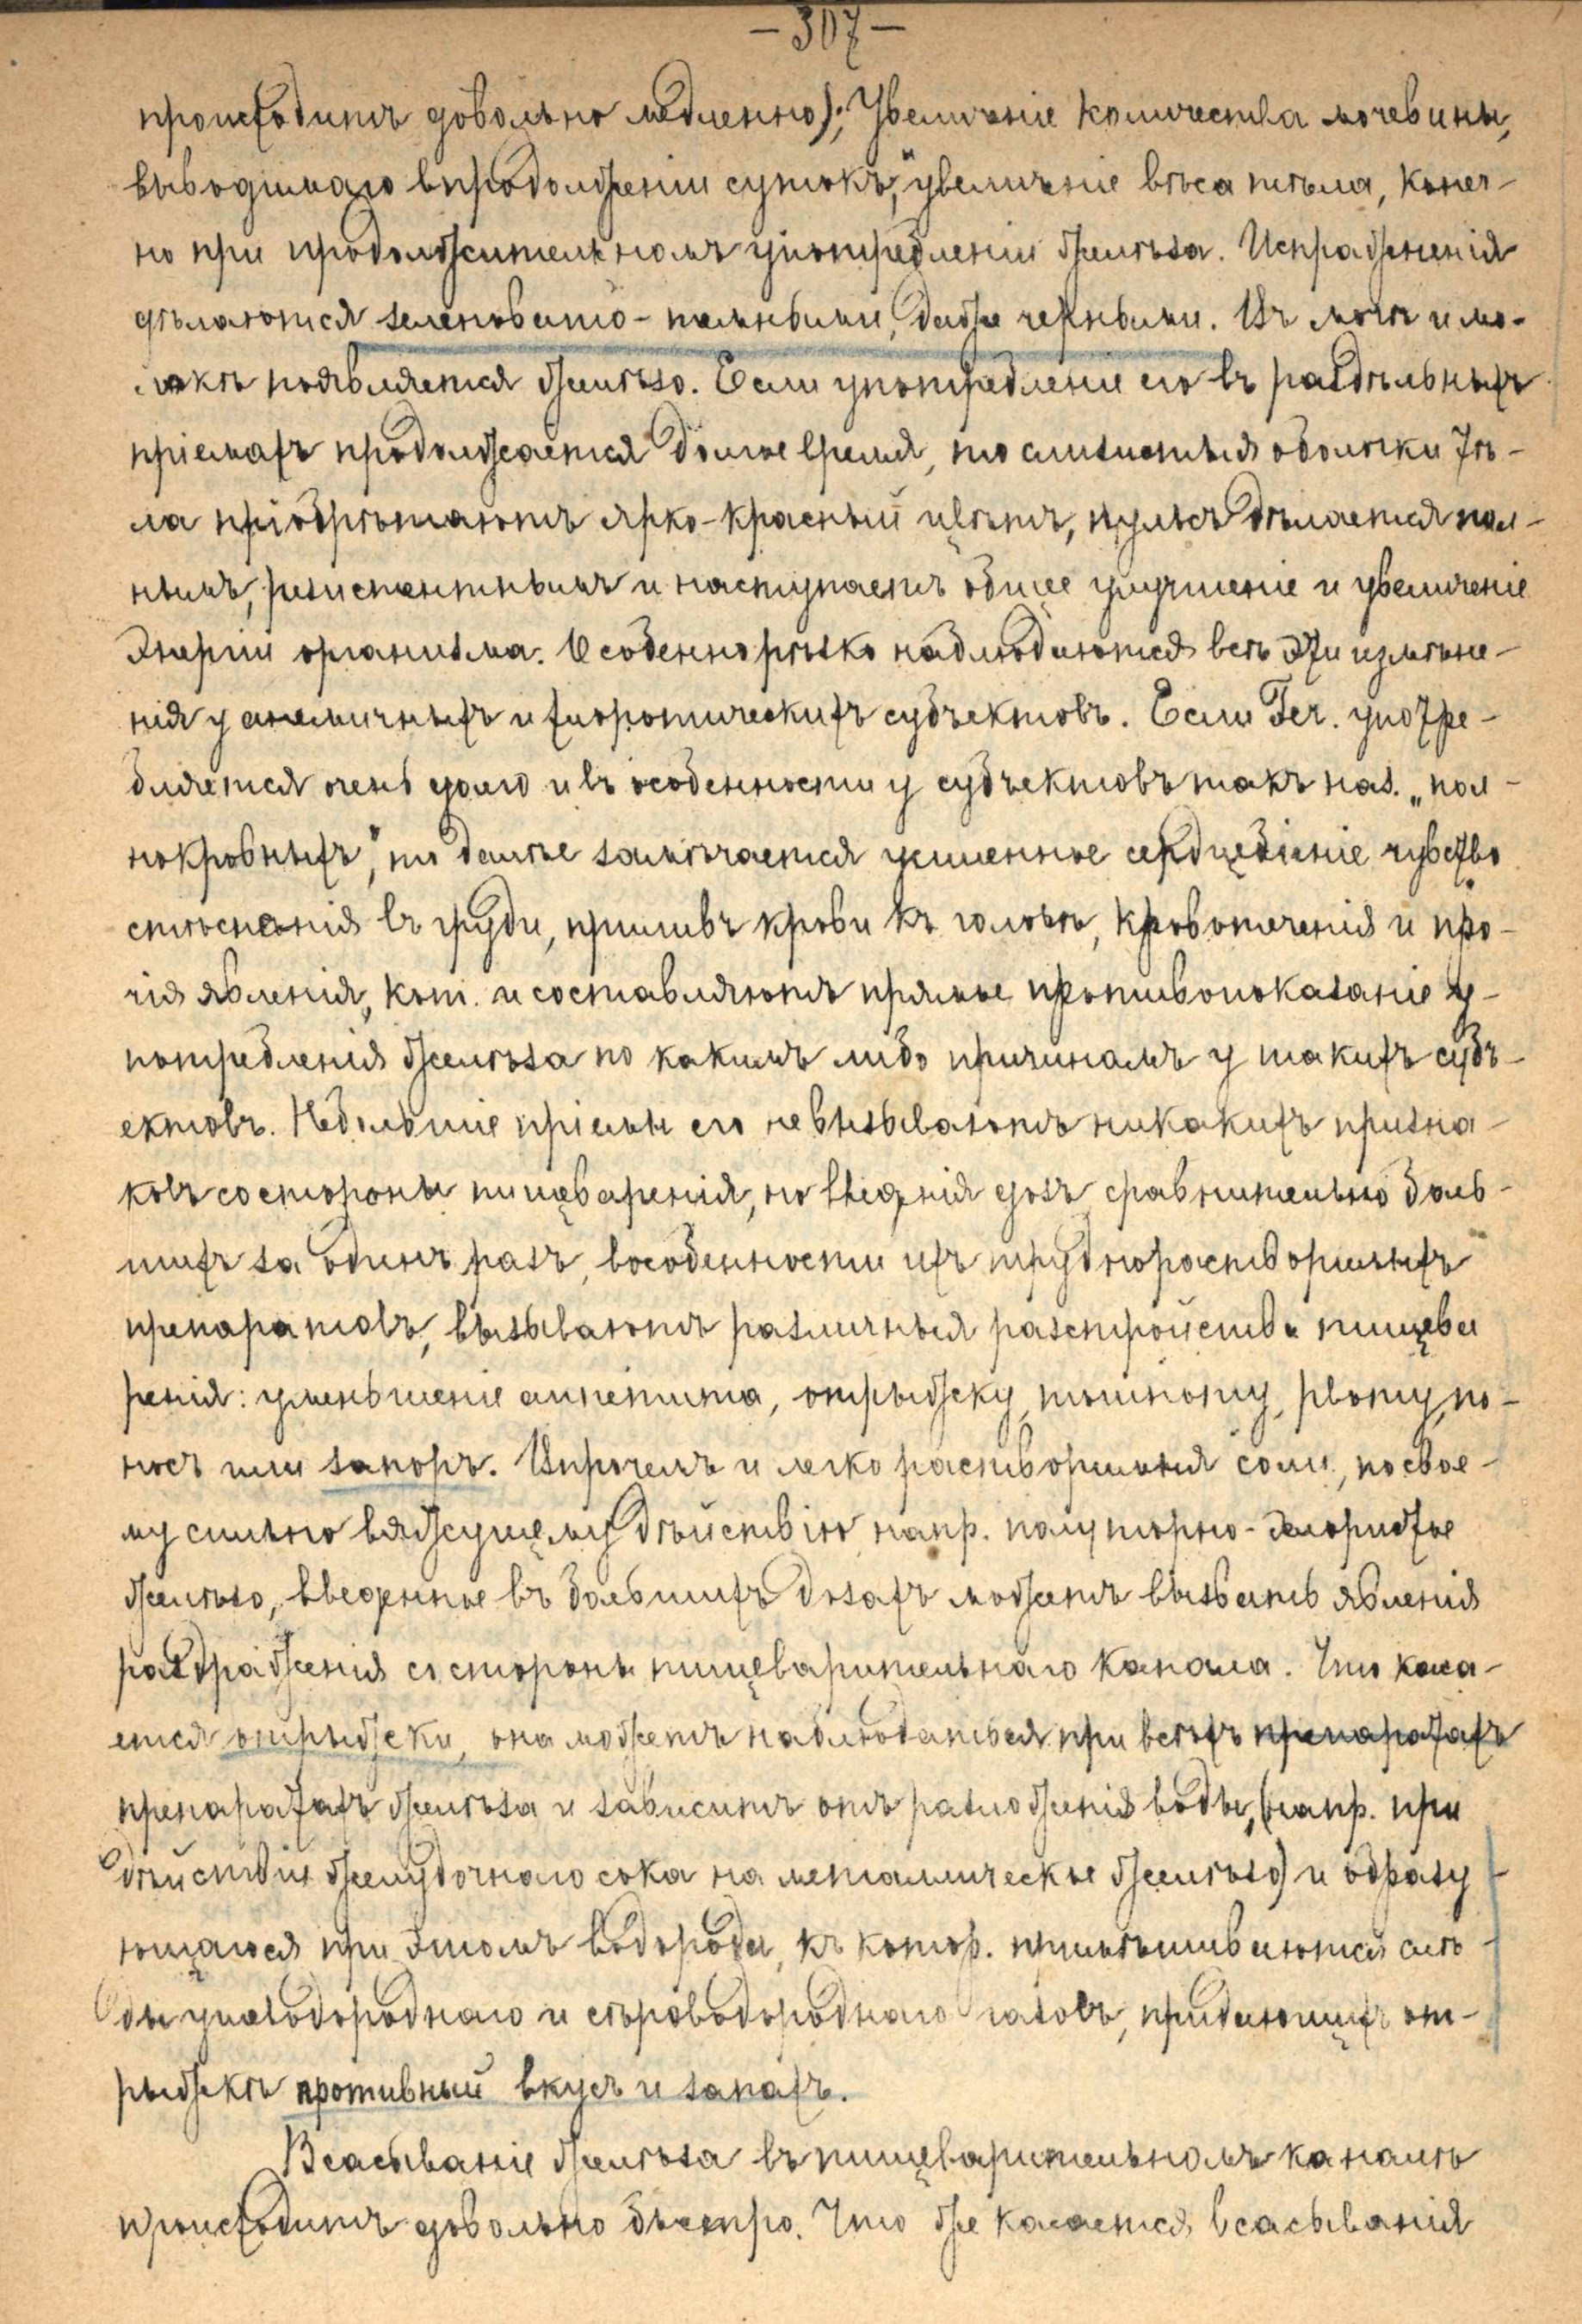 – 307 –
происходитъ довольно медленно); Увеличеніе количества мочевины,
выводимаго впродолженіи сутокъ, увеличеніе вѣса тѣла, конеч-
но при продолжительномъ употребленіи желѣза. Испражненія
дѣлаются зеленовато-темными, даже черными. Въ мочѣ и мо-
локѣ появляется желѣзо. Если употребленіе его въ раздѣльныхъ
пріемахъ продолжается долгое время, то слизистыя оболочки тѣ-
ла пріобрѣтаютъ ярко-красный цвѣтъ, пульсъ дѣлается пол-
нымъ, резистентнымъ и наступаетъ общее улучшеніе и увеличеніе
энергіи организма. Особенно рѣзко наблюдаются всѣ эти измѣне-
нія у анемичныхъ и хлоротическихъ субъектовъ. Если Fer. употре-
бляется очень долго и въ особенности у субъектовъ такъ наз. „пол-
нокровныхъ", то далѣе замѣчается усиленное сердцебіеніе чувство
стѣсненія въ груди, приливъ крови къ головѣ, кровотеченія и про-
чія явленія, кот. и составляютъ прямое противопоказаніе у-
потребленія желѣза по какимъ либо причинамъ у такихъ субъ-
ектовъ. Небольшіе пріемы его не вызываютъ никакихъ призна-
ковъ со стороны пищеваренія, но введенія дозъ сравнительно боль-
шихъ за одинъ разъ, вособенности ихъ труднорастворимыхъ
препаратовъ, вызываютъ различныя разстройства пищева
ренія: уменьшеніе аппетита, отрыжку, тошноту, рвоту, по-
носъ или запоръ. Впрочемъ и легко растворимыя соли, по свое-
му сильно вяжущему дѣйствію напр. полуторно-хлористое
желѣзо, введенное въ большихъ дозахъ можетъ вызвать явленія
раздраженія со стороны пищеварительнаго канала. Что каса-
ется отрыжки, она можетъ наблюдаться при всѣхъ препаратахъ
препаратахъ желѣза и зависитъ отъ разложенія воды, (напр. при
дѣйствіи желудочнаго сока на металлическое желѣзо) и образу
ющагося при этомъ водорода, къ котор. примѣшиваются слѣ-
ды углеводороднаго и сѣроводороднаго газовъ, придающихъ от-
рыжкѣ противный вкусъ и запахъ.
Всасываніе желѣза въ пищеварительномъ каналѣ
происходитъ довольно быстро. Что же касается всасыванія